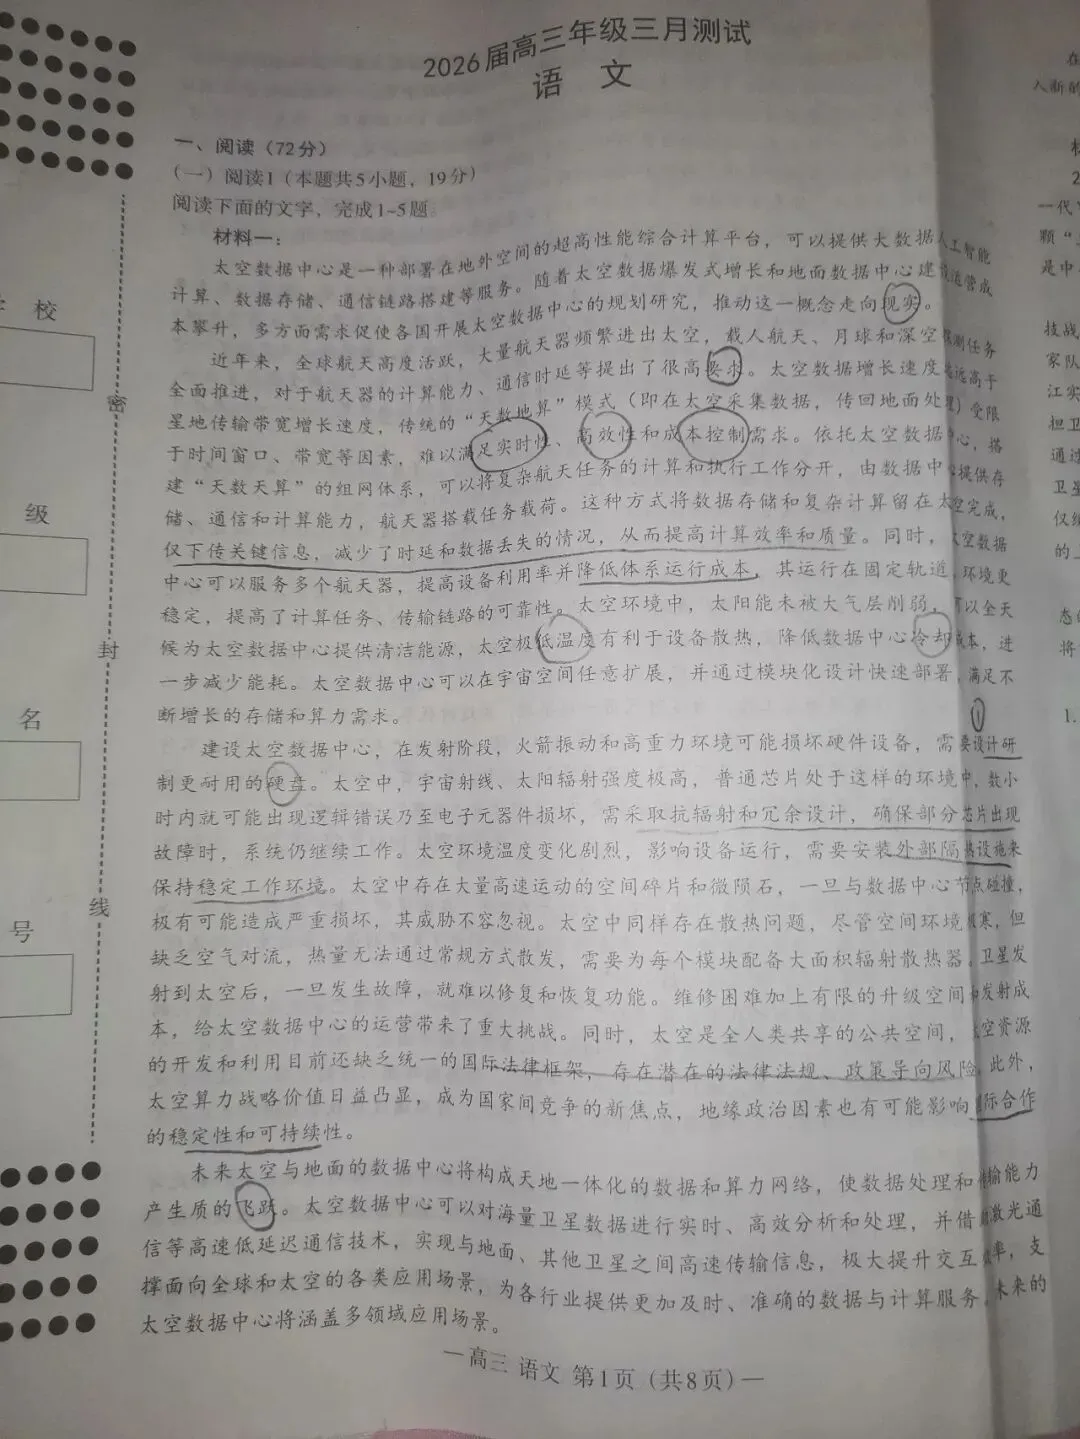 2026届高三年级三月测试
语 文
一、阅读（72分）
（一）阅读1（本题共5小题，19分）
阅读下面的文字，完成1~5题。
材料一：
太空数据中心是一种部署在地外空间的超高性能综合计算平台，可以提供大数据人工智能
计算、数据存储、通信链路搭建等服务。随着太空数据爆发式增长和地面数据中心建设运营成
本攀升，多方面需求促使各国开展太空数据中心的规划研究，推动这一概念走向现实。
近年来，全球航天高度活跃，大量航天器频繁进出太空，载人航天、月球和深空探测任务
全面推进，对于航天器的计算能力、通信时延等提出了很高要求。太空数据增长速度远远高于
星地传输带宽增长速度，传统的“天数地算”模式（即在太空采集数据，传回地面处理）受限
于时间窗口、带宽等因素，难以满足实时性、高效性和成本控制需求。依托太空数据中心，搭
建“天数天算”的组网体系，可以将复杂航天任务的计算和执行工作分开，由数据中心提供存
储、通信和计算能力，航天器搭载任务载荷。这种方式将数据存储和复杂计算留在太空完成，
仅下传关键信息，减少了时延和数据丢失的情况，从而提高计算效率和质量。同时，太空数据
中心可以服务多个航天器，提高设备利用率并降低体系运行成本，其运行在固定轨道，环境更
稳定，提高了计算任务、传输链路的可靠性。太空环境中，太阳能未被大气层削弱，可以全天
候为太空数据中心提供清洁能源，太空极低温度有利于设备散热，降低数据中心冷却成本，进
一步减少能耗。太空数据中心可以在宇宙空间任意扩展，并通过模块化设计快速部署，满足不
断增长的存储和算力需求。
①
建设太空数据中心，在发射阶段，火箭振动和高重力环境可能损坏硬件设备，需要设计研
制更耐用的硬盘。太空中，宇宙射线、太阳辐射强度极高，普通芯片处于这样的环境中，数小
时内就可能出现逻辑错误乃至电子元器件损坏，需采取抗辐射和冗余设计，确保部分芯片出现
故障时，系统仍继续工作。太空环境温度变化剧烈，影响设备运行，需要安装外部隔热设施来
保持稳定工作环境。太空中存在大量高速运动的空间碎片和微陨石，一旦与数据中心节点碰撞，
极有可能造成严重损坏，其威胁不容忽视。太空中同样存在散热问题，尽管空间环境极寒，但
缺乏空气对流，热量无法通过常规方式散发，需要为每个模块配备大面积辐射散热器。卫星发
射到太空后，一旦发生故障，就难以修复和恢复功能。维修困难加上有限的升级空间和发射成
本，给太空数据中心的运营带来了重大挑战。同时，太空是全人类共享的公共空间，太空资源
的开发和利用目前还缺乏统一的国际法律框架，存在潜在的法律法规、政策导向风险。此外，
太空算力战略价值日益凸显，成为国家间竞争的新焦点，地缘政治因素也有可能影响国际合作
的稳定性和可持续性。
未来太空与地面的数据中心将构成天地一体化的数据和算力网络，使数据处理和传输能力
产生质的飞跃。太空数据中心可以对海量卫星数据进行实时、高效分析和处理，并借助激光通
信等高速低延迟通信技术，实现与地面、其他卫星之间高速传输信息，极大提升交互效率，支
撑面向全球和太空的各类应用场景，为各行业提供更加及时、准确的数据与计算服务。未来的
太空数据中心将涵盖多领域应用场景。
—高三 语文 第1页（共8页）—
校
级
名
号
密
封
线
在
入新的
2
一代
颗“
是中
技战
家队
江实
担卫
通过
卫星
仅纟
的
态的
将
1.